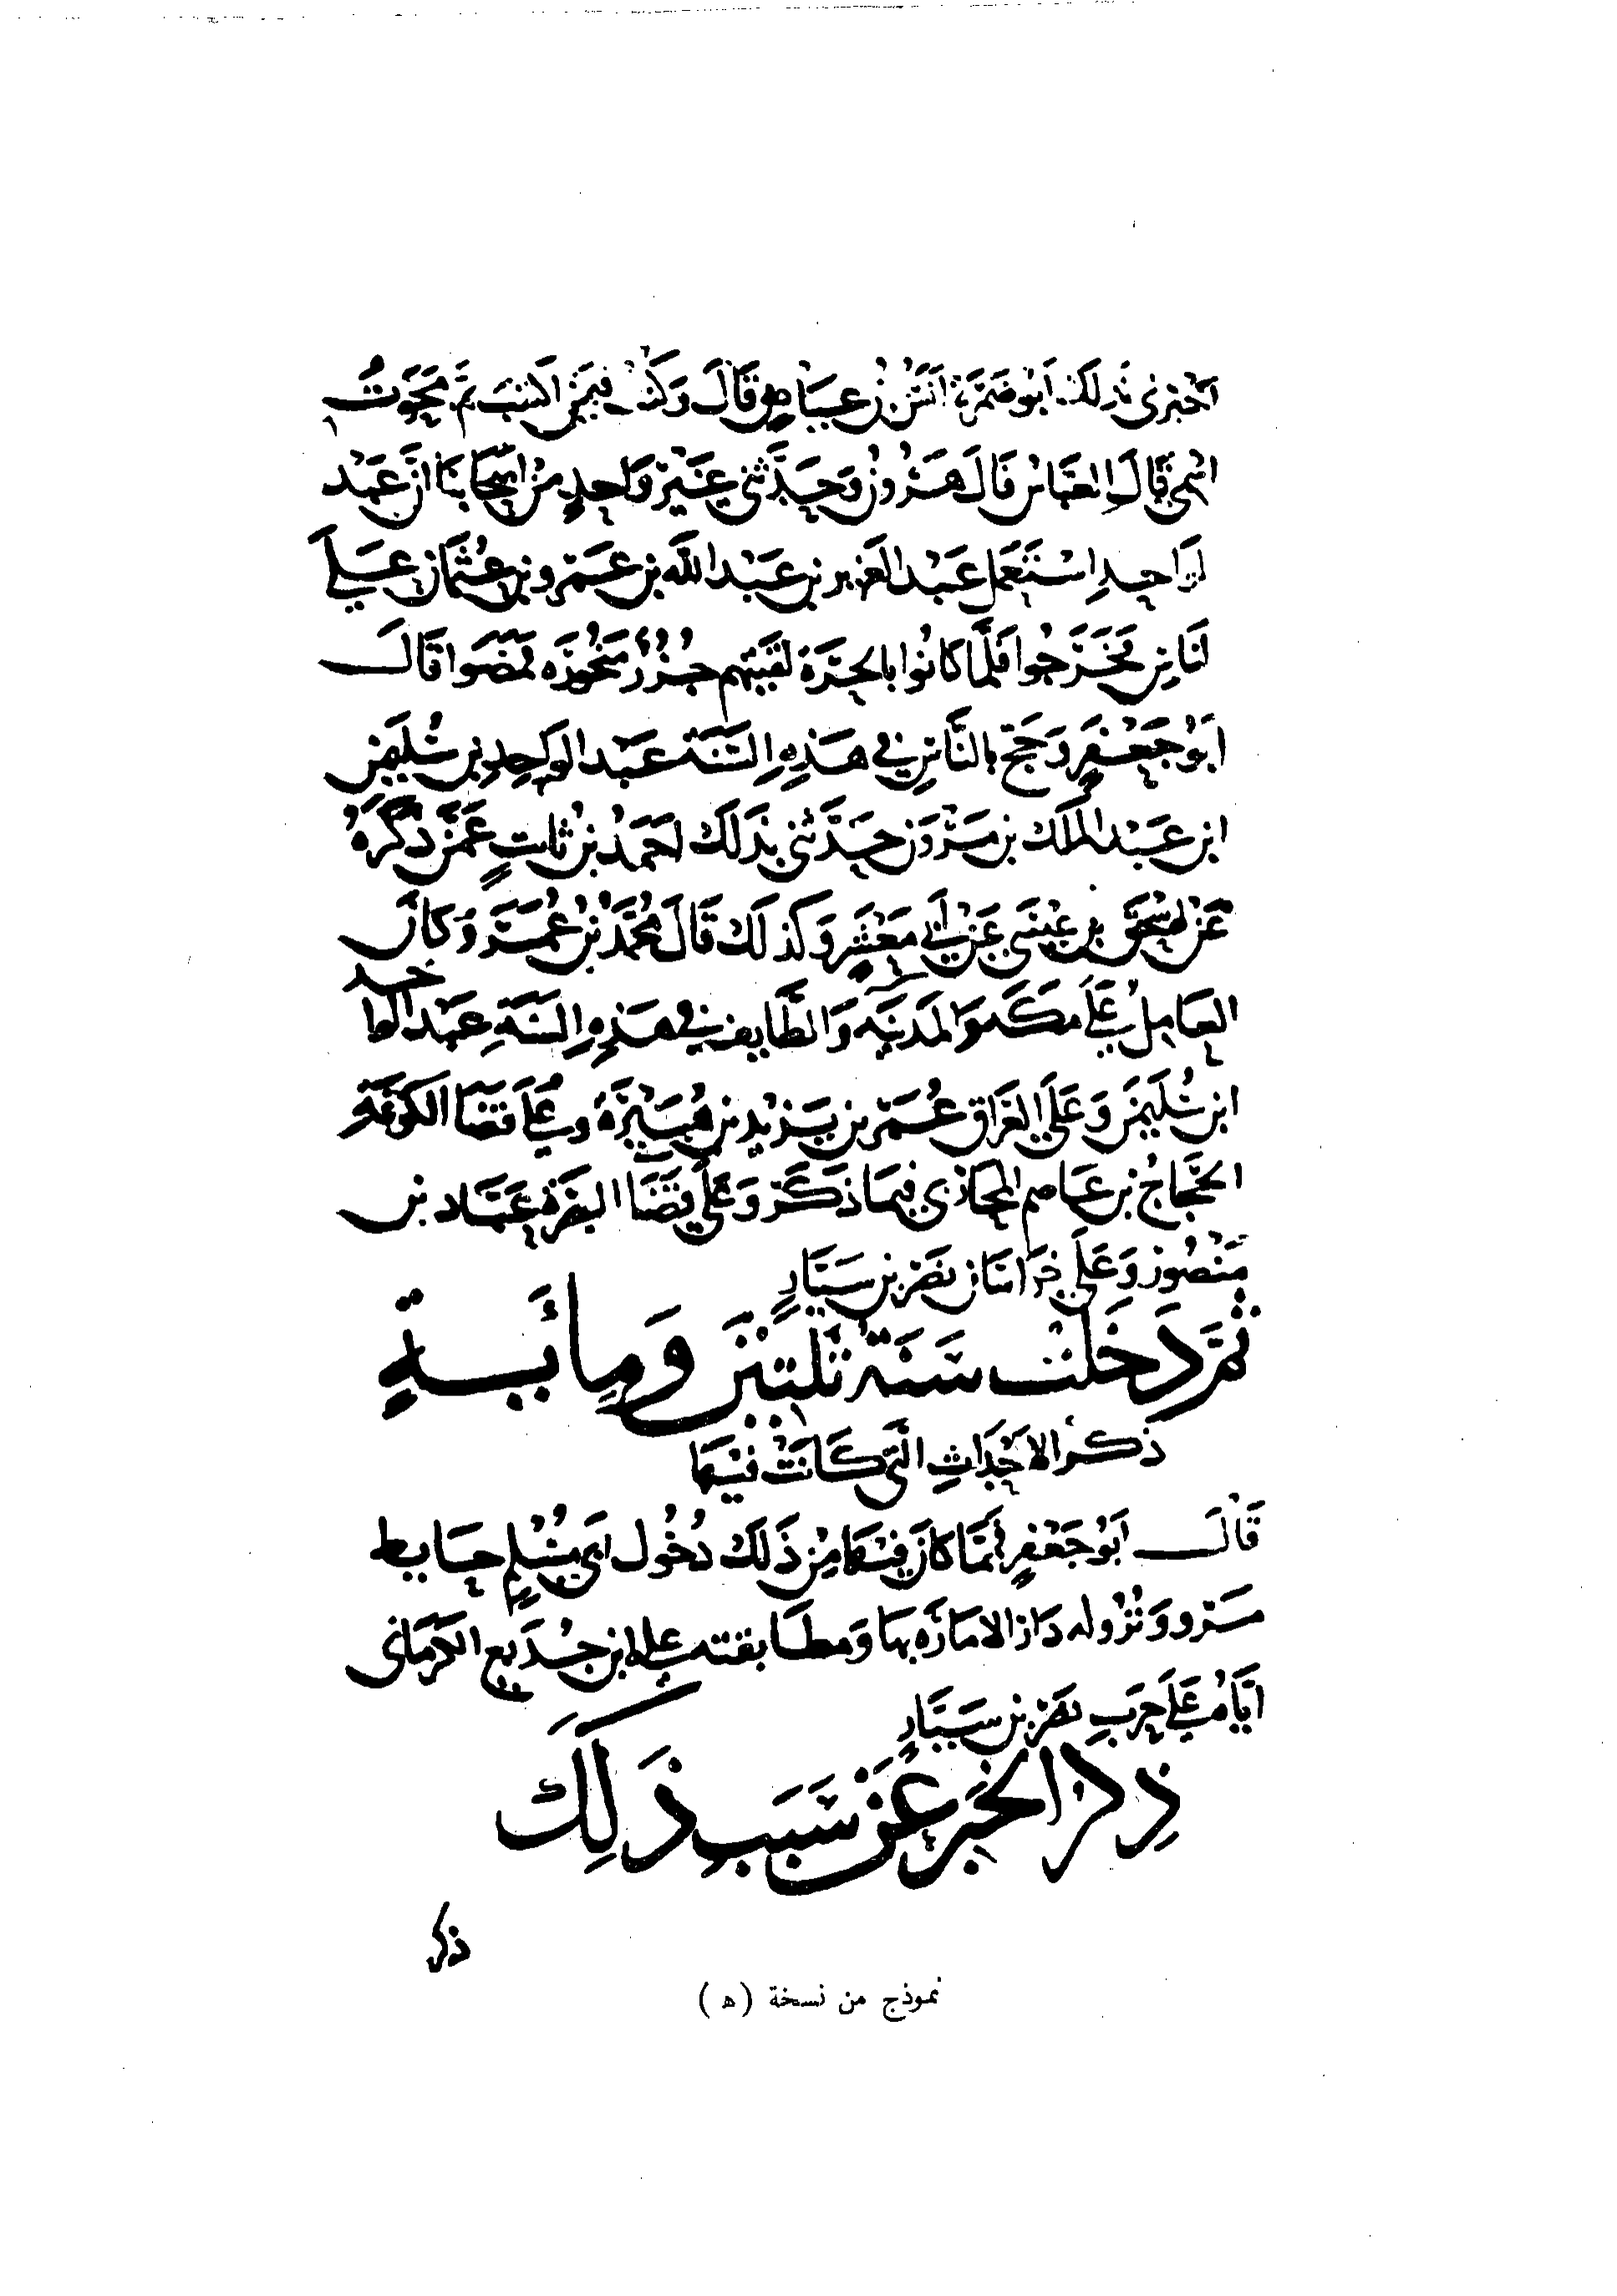 اخبرنى بذلك ابو ضمرة انس بن عياض قال وكنت فيمن اكتتب ثم محوت
اسمى قال العباس قال هرون وحدثنى غير واحد من اصحابنا ان عبد
الواحد استعمل عبد العزيز بن عبد الله بن عمرو بن عثمان على
الناس فخرجوا فلما كانوا بالحرة لقيتهم جزر منحورة فمضوا قال
ابو جعفر وحج بالناس في هذه السنة عبد الواحد بن سليمن
ابن عبد الملك بن مروان حدثنى بذلك احمد بن ثابت عمن ذكره
عن اسحق بن عيسى عن ابي معشر وكذلك قال محمد بن عمر وكان
العامل على مكه والمدينه والطايف في هذه السنة عبد الواحد
ابن سليمن وعلى العراق عمر بن يزيد بن هبيرة وعلى قضا الكوفة
الحجاج بن عاصم المحاذبي فيما ذكر وعلى قضا البصرة عباد بن
منصور وعلى خراسان نصر بن سيار
ثم دخلت سنة ثلثين ومائة
ذكر الاحداث التى كانت فيها
قال ابو جعفر فمما كان فيها من ذلك دخول ابى مسلم حايط
مرو ونزوله دار الامارة بها ومطابقته على ابن جديع الكرمانى
اياه على حرب نصر بن سيار
ذكر الخبر عن سبب ذلك
ذكر
نموذج من نسخة (ه)